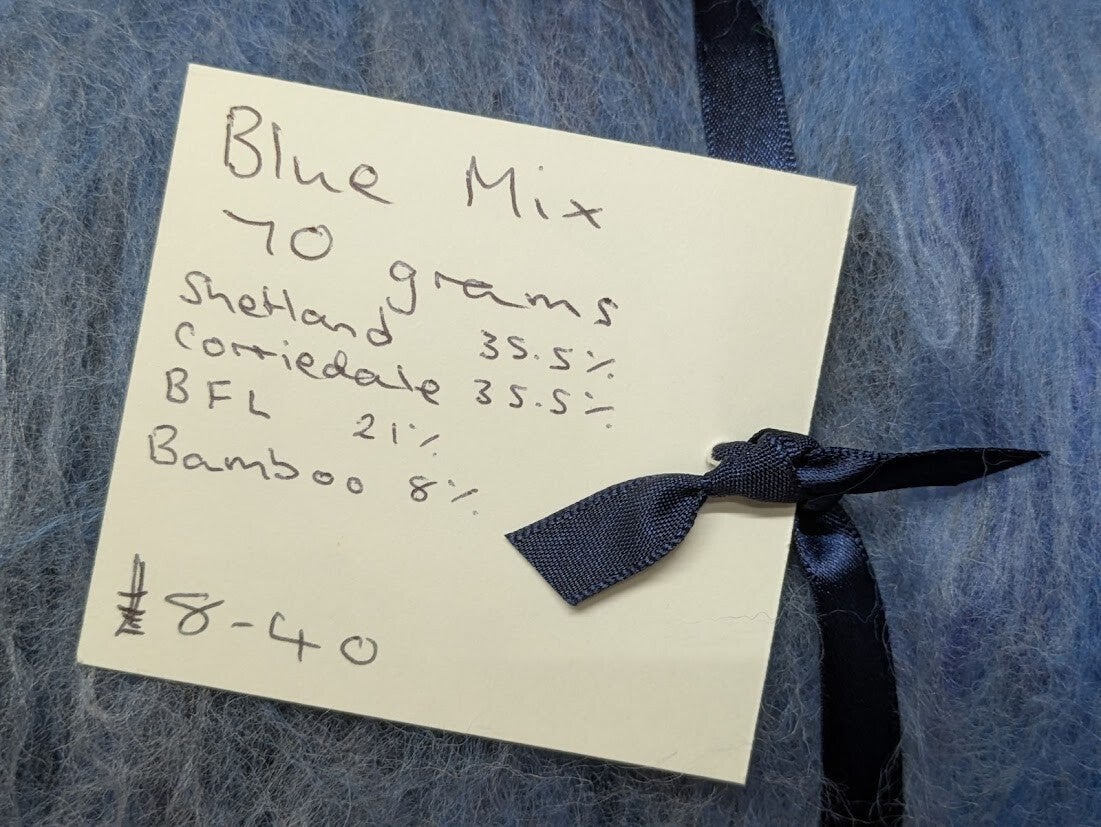 Blue Mix
70 grams
Shetland 35.5%
Corriedale 35.5%
BFL 21%
Bamboo 8%
8-40